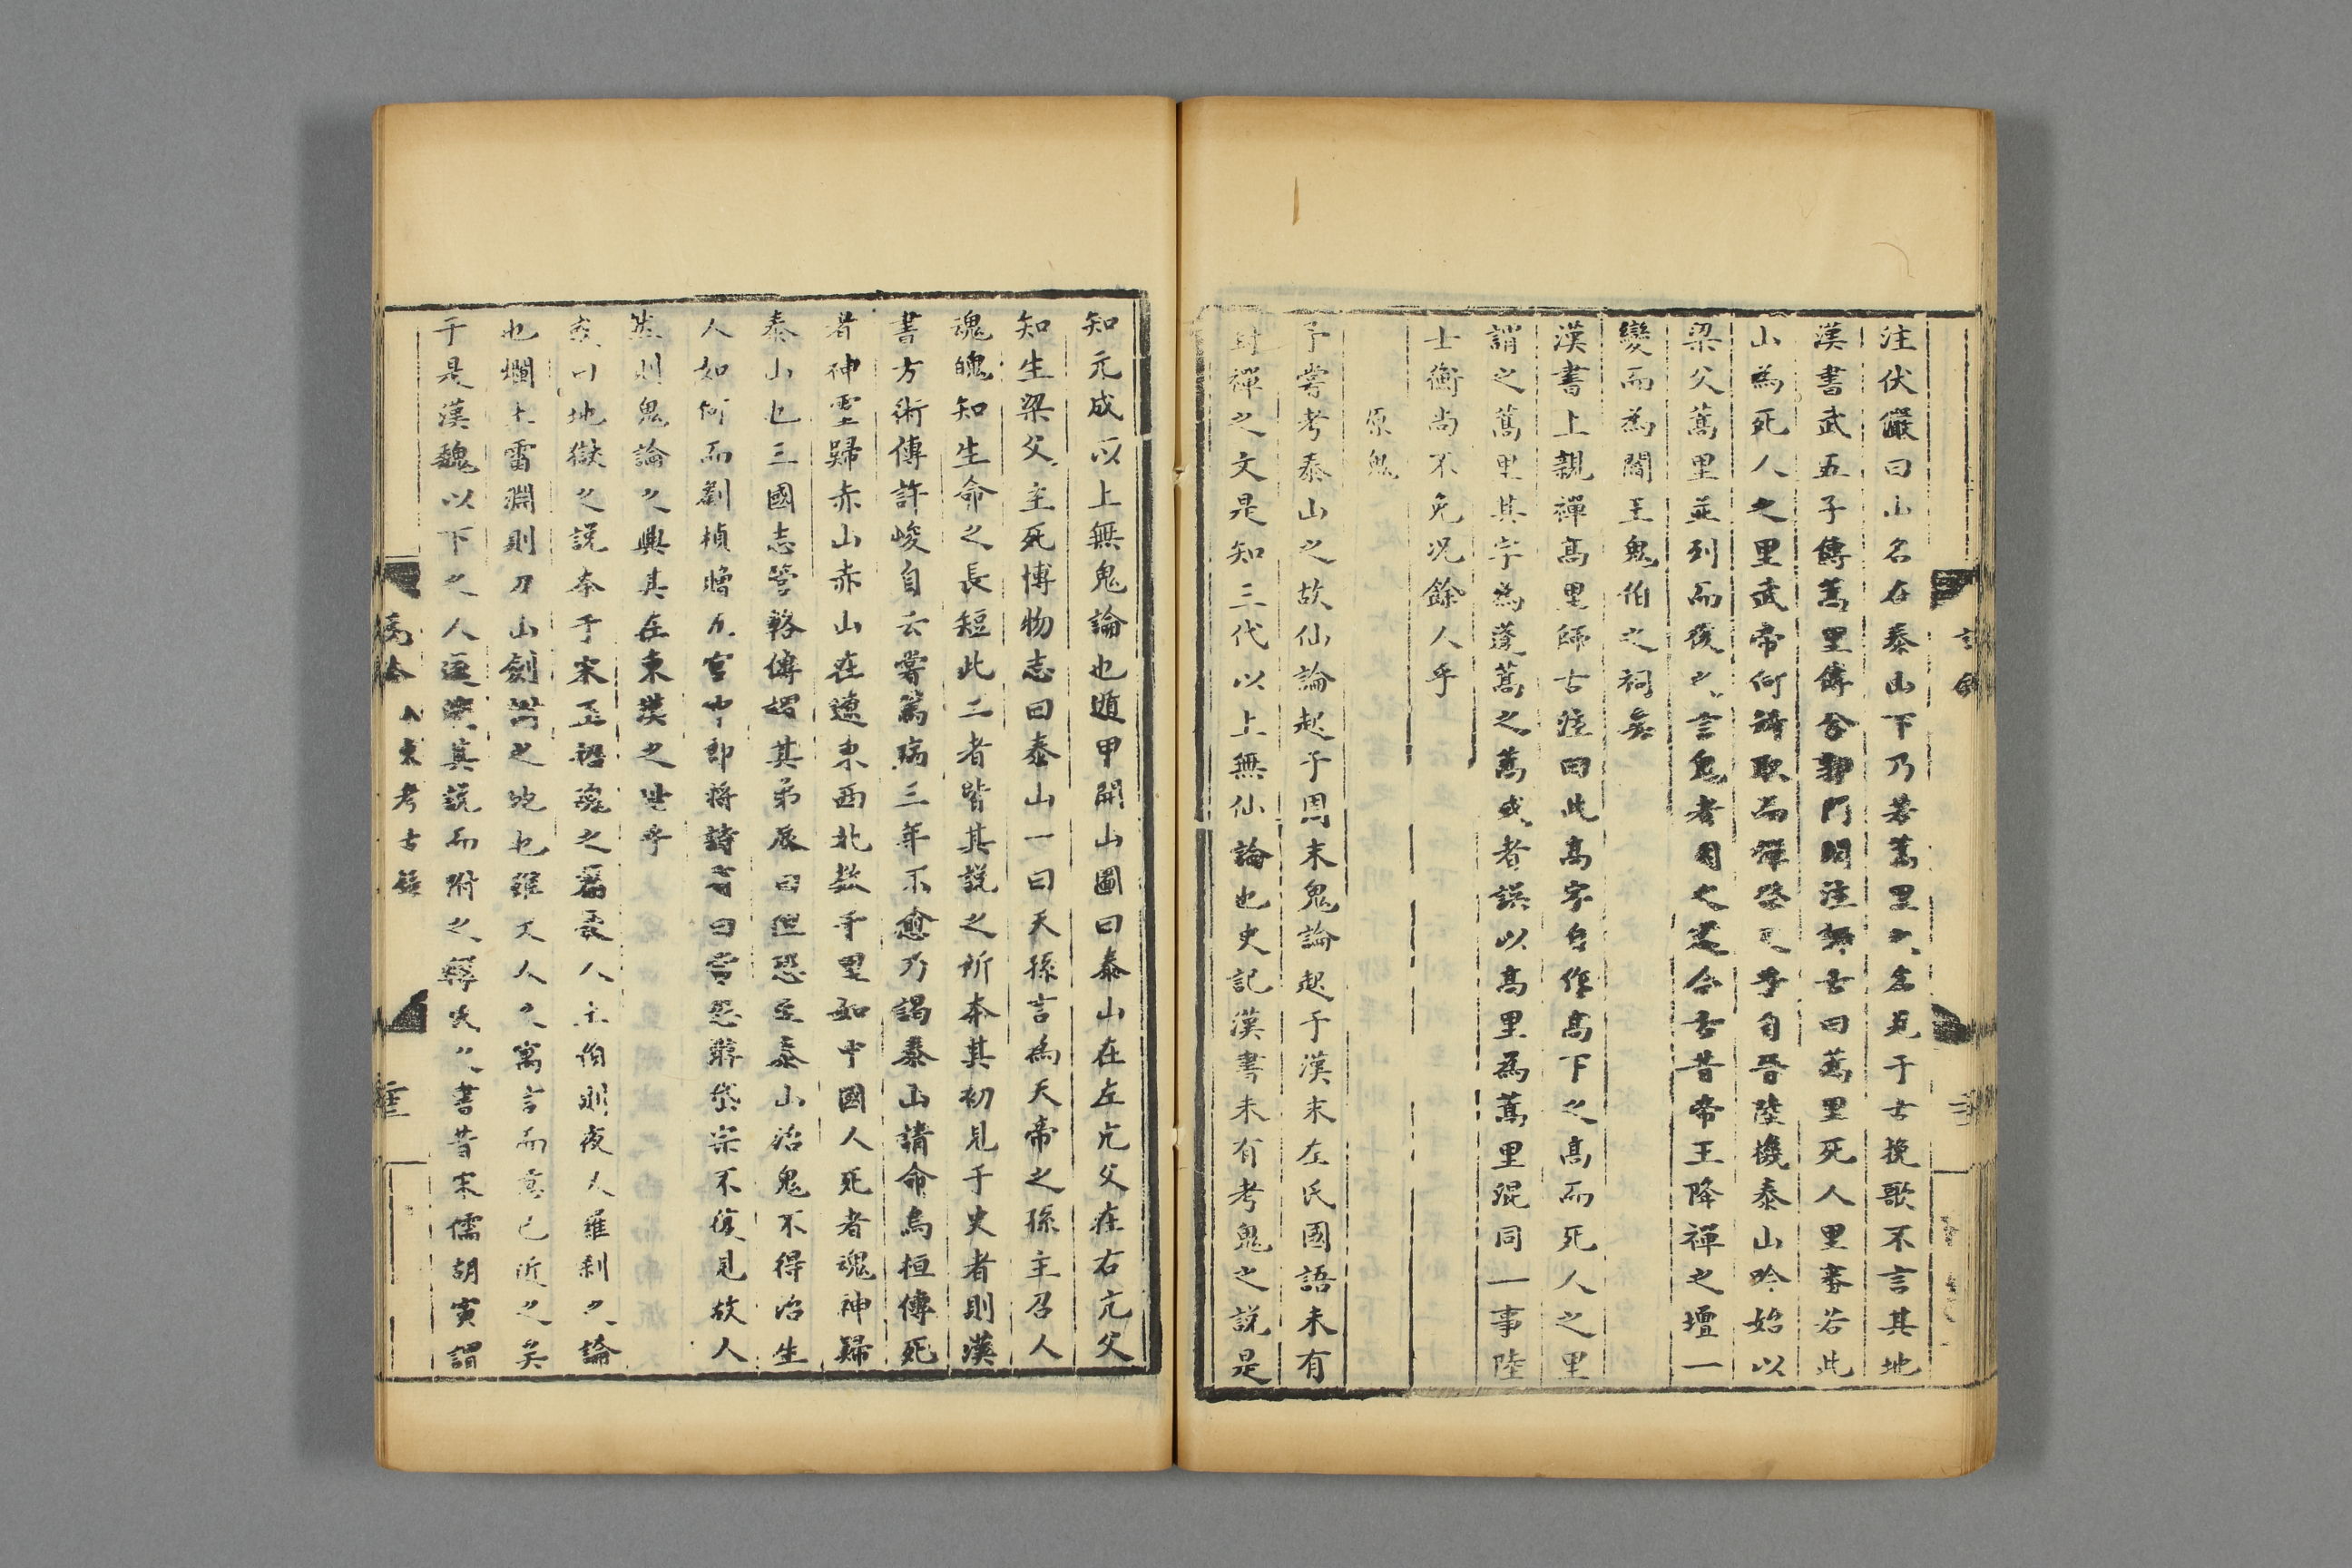 注伏儼曰山名在泰山下乃若蒿里之名見于古挽歌不言其地
漢書武五子傳蒿里傳兮郭門閱注師古曰蒿里死人里審若此
山為死人之里武帝何所取而禪祭之乎自晉陸機泰山吟始以
梁父蒿里並列而後之言鬼者因之遂令古昔帝王降禪之壇一
變而為閻王鬼伯之祠矣
漢書上親禪高里師古注曰此高字自作高下之高而死人之里
謂之蒿里其字為蓬蒿之蒿或者誤以高里為蒿里混同一事陸
士衡尚不免况餘人乎
原鬼
予嘗考泰山之故仙論起于周末鬼論起于漢末左氏國語未有
封禪之文是知三代以上無仙論也史記漢書未有考鬼之説是
知元成以上無鬼論也遁甲開山圖曰泰山在左亢父在右亢父
知生梁父主死博物志曰泰山一曰天孫言為天帝之孫主召人
魂魄知生命之長短此二者皆其説之所本其初見于史者則漢
書方術傳許峻自云嘗篤病三年不愈乃謁泰山請命烏桓傳死
者神靈歸赤山赤山在遼東西北數千里如中國人死者魂神歸
泰山也三國志管輅傳謂其弟辰曰但恐至泰山治鬼不得治生
人如何而劉楨贈五官中郎將詩有曰常恐游岱宗不復見故人
然則鬼論之興其在東漢之世乎
或曰地獄之説本于宋玉招魂之篇長人土伯則夜叉羅刹之論
也爛土雷淵則刀山劍樹之地也雖文人之寓言而意已近之矣
于是漢魏以下之人遂演其説而附之釋氏之書昔宋儒胡寅謂
山東考古錄